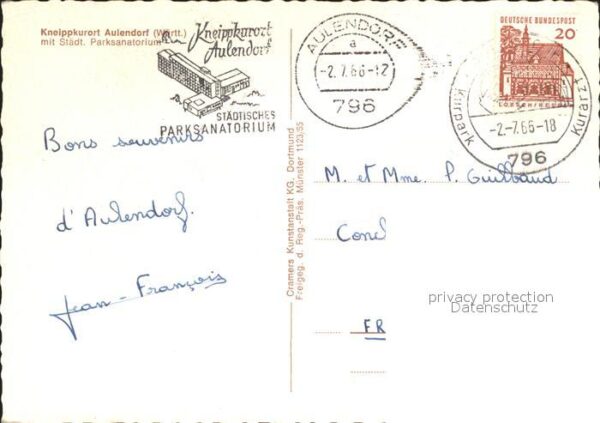 Kneippkurort Aulendorf (Württ.)
mit Städt. Parksanatorium
Kneippkurort
Aulendorf
STÄDTISCHES
PARKSANATORIUM
AULENDORF
a
-2.7.66-12
796
DEUTSCHE BUNDESPOST
20
Kurpark
Kurarzt
-2.-7.66-18
796
Bons souvenirs
d'Aulendorf.
Jean-François
Cramers Kunstanstalt KG. Dortmund
Freigeg. d. Reg.-Präs. Münster 1123/55
M. et Mme. P. Guilbaud
FR
privacy protection
Datenschutz